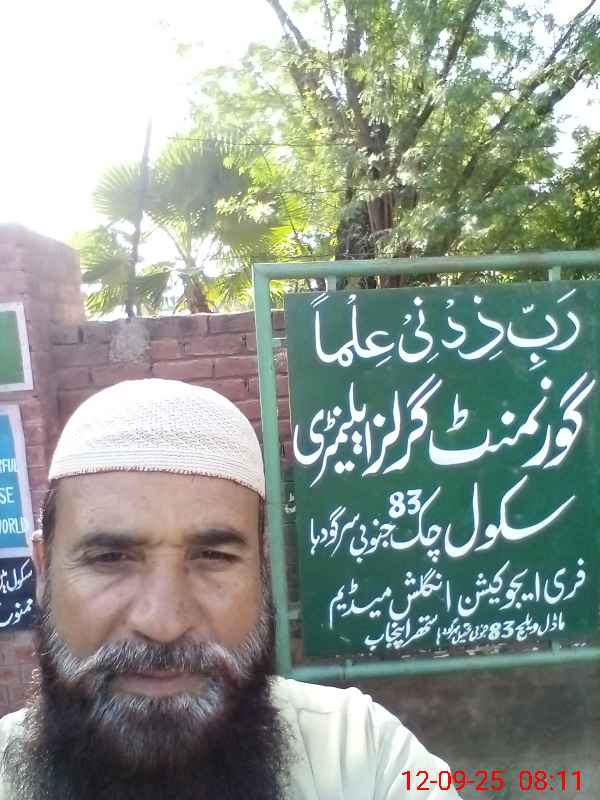 رَبِّ ذِدْنِیْ عِلْماً
گورنمنٹ گرلز ایلیمنٹری
سکول چک 83 جنوبی سرگودہا
فری ایجوکیشن انگلش میڈیم
ماڈل ویلج 83 جنوبی تحصیل سرگودہا ستھرا پنجاب
SE
WORLD
سکول
ممنوع
12-09-25 08:11